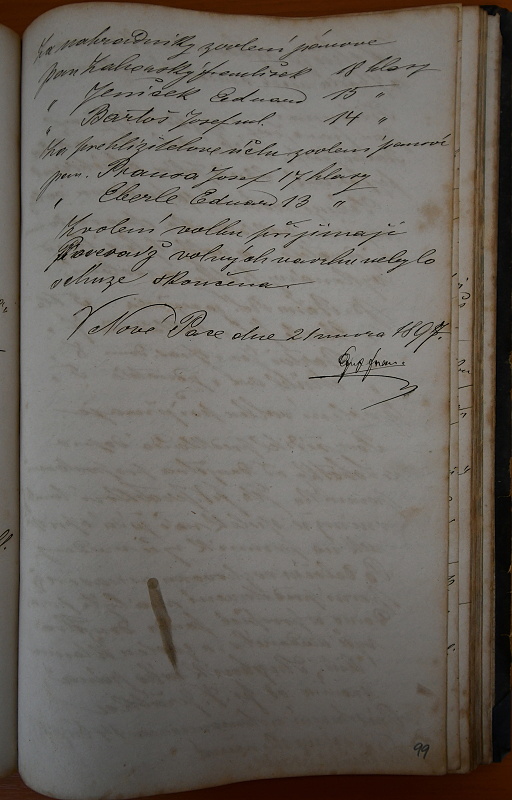 Za náhradníky zvoleni pánové
pan Zahorský František 18 hlasy
" Jeníček Eduard 15 "
" Bartoš Josef ml. 14 "
Za přehlížitele účtu zvoleni pánové
pan. Prausa Josef 17 hlasy
" Eberle Eduard 13 "
Zvolení volbu přijímají
Poněvadž volných návrhu nebylo
schůze skončena.
V Nové Pace dne 21 února 1897.
99